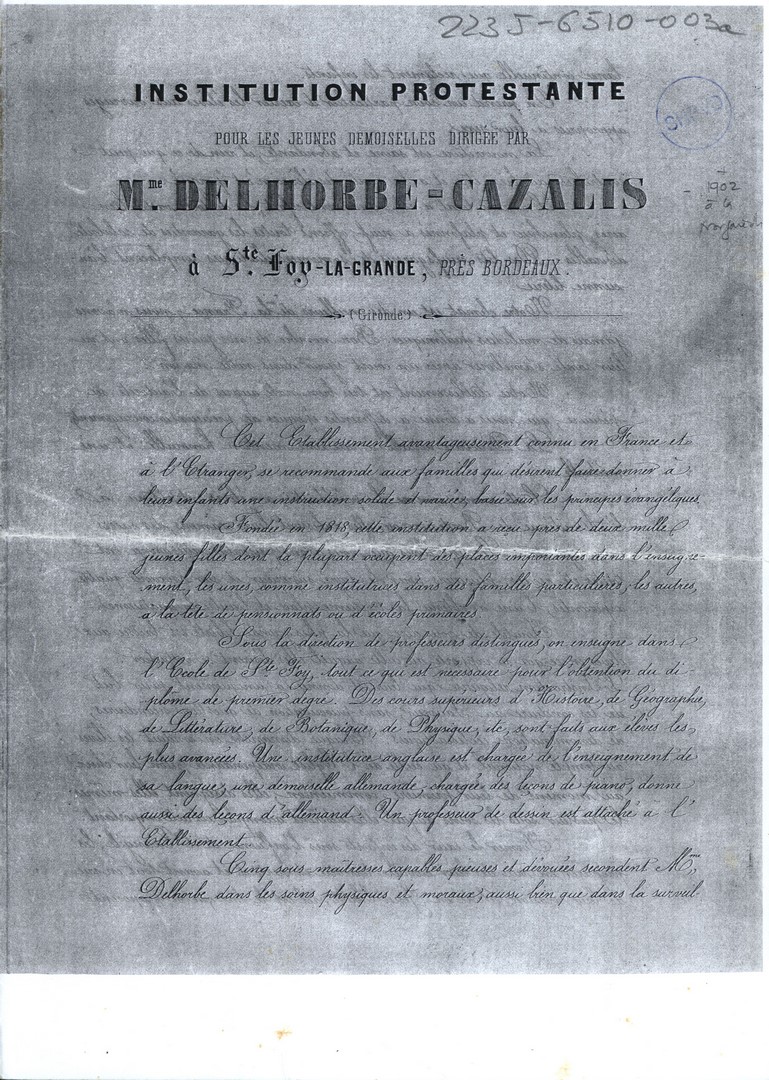 223J-6510-003a
INSTITUTION PROTESTANTE
POUR LES JEUNES DEMOISELLES DIRIGÉE PAR
Mme. DELHORBE-CAZALIS
1902
à la
à Ste. Foy-LA-GRANDE, PRÈS BORDEAUX.
(Gironde)
Cet Etablissement avantageusement connu en France et
à l'Etranger, se recommande aux familles qui désirent faire donner à
leurs enfants une instruction solide et variée, basée sur les principes évangéliques.
Fondée en 1818, cette institution a reçu près de deux mille
jeunes filles dont la plupart occupent des places importantes dans l'enseigne-
ment, les unes, comme institutrices dans des familles particulières, les autres,
à la tête de pensionnats ou d'écoles primaires.
Sous la direction de professeurs distingués, on enseigne dans
l'Ecole de Ste Foy, tout ce qui est nécessaire pour l'obtention du di
plôme de premier degré. Des cours supérieurs d'Histoire, de Géographie,
de Littérature, de Botanique, de Physique, etc, sont faits aux élèves les
plus avancées. Une institutrice anglaise est chargée de l'enseignement de
sa langue, une demoiselle allemande, chargée des leçons de piano, donne
aussi des leçons d'allemand. Un professeur de dessin est attaché à l'
Etablissement.
Cinq sous-maîtresses capables, pieuses et dévouées secondent Mme
Delhorbe dans les soins physiques et moraux, aussi bien que dans la surveil